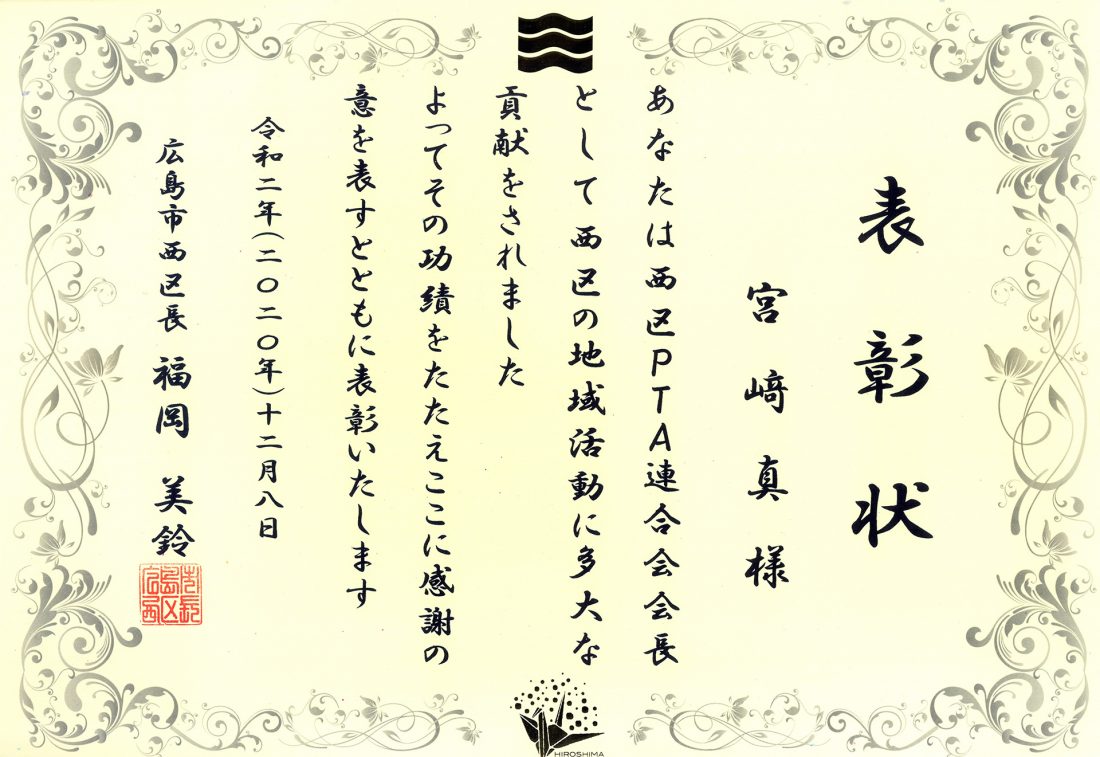 表彰状
宮﨑真様
あなたは西区PTA連合会会長
として西区の地域活動に多大な
貢献をされました
よってその功績をたたえここに感謝の
意を表すとともに表彰いたします
令和二年(二〇二〇年)十二月八日
広島市西区長 福岡 美鈴
HIROSHIMA